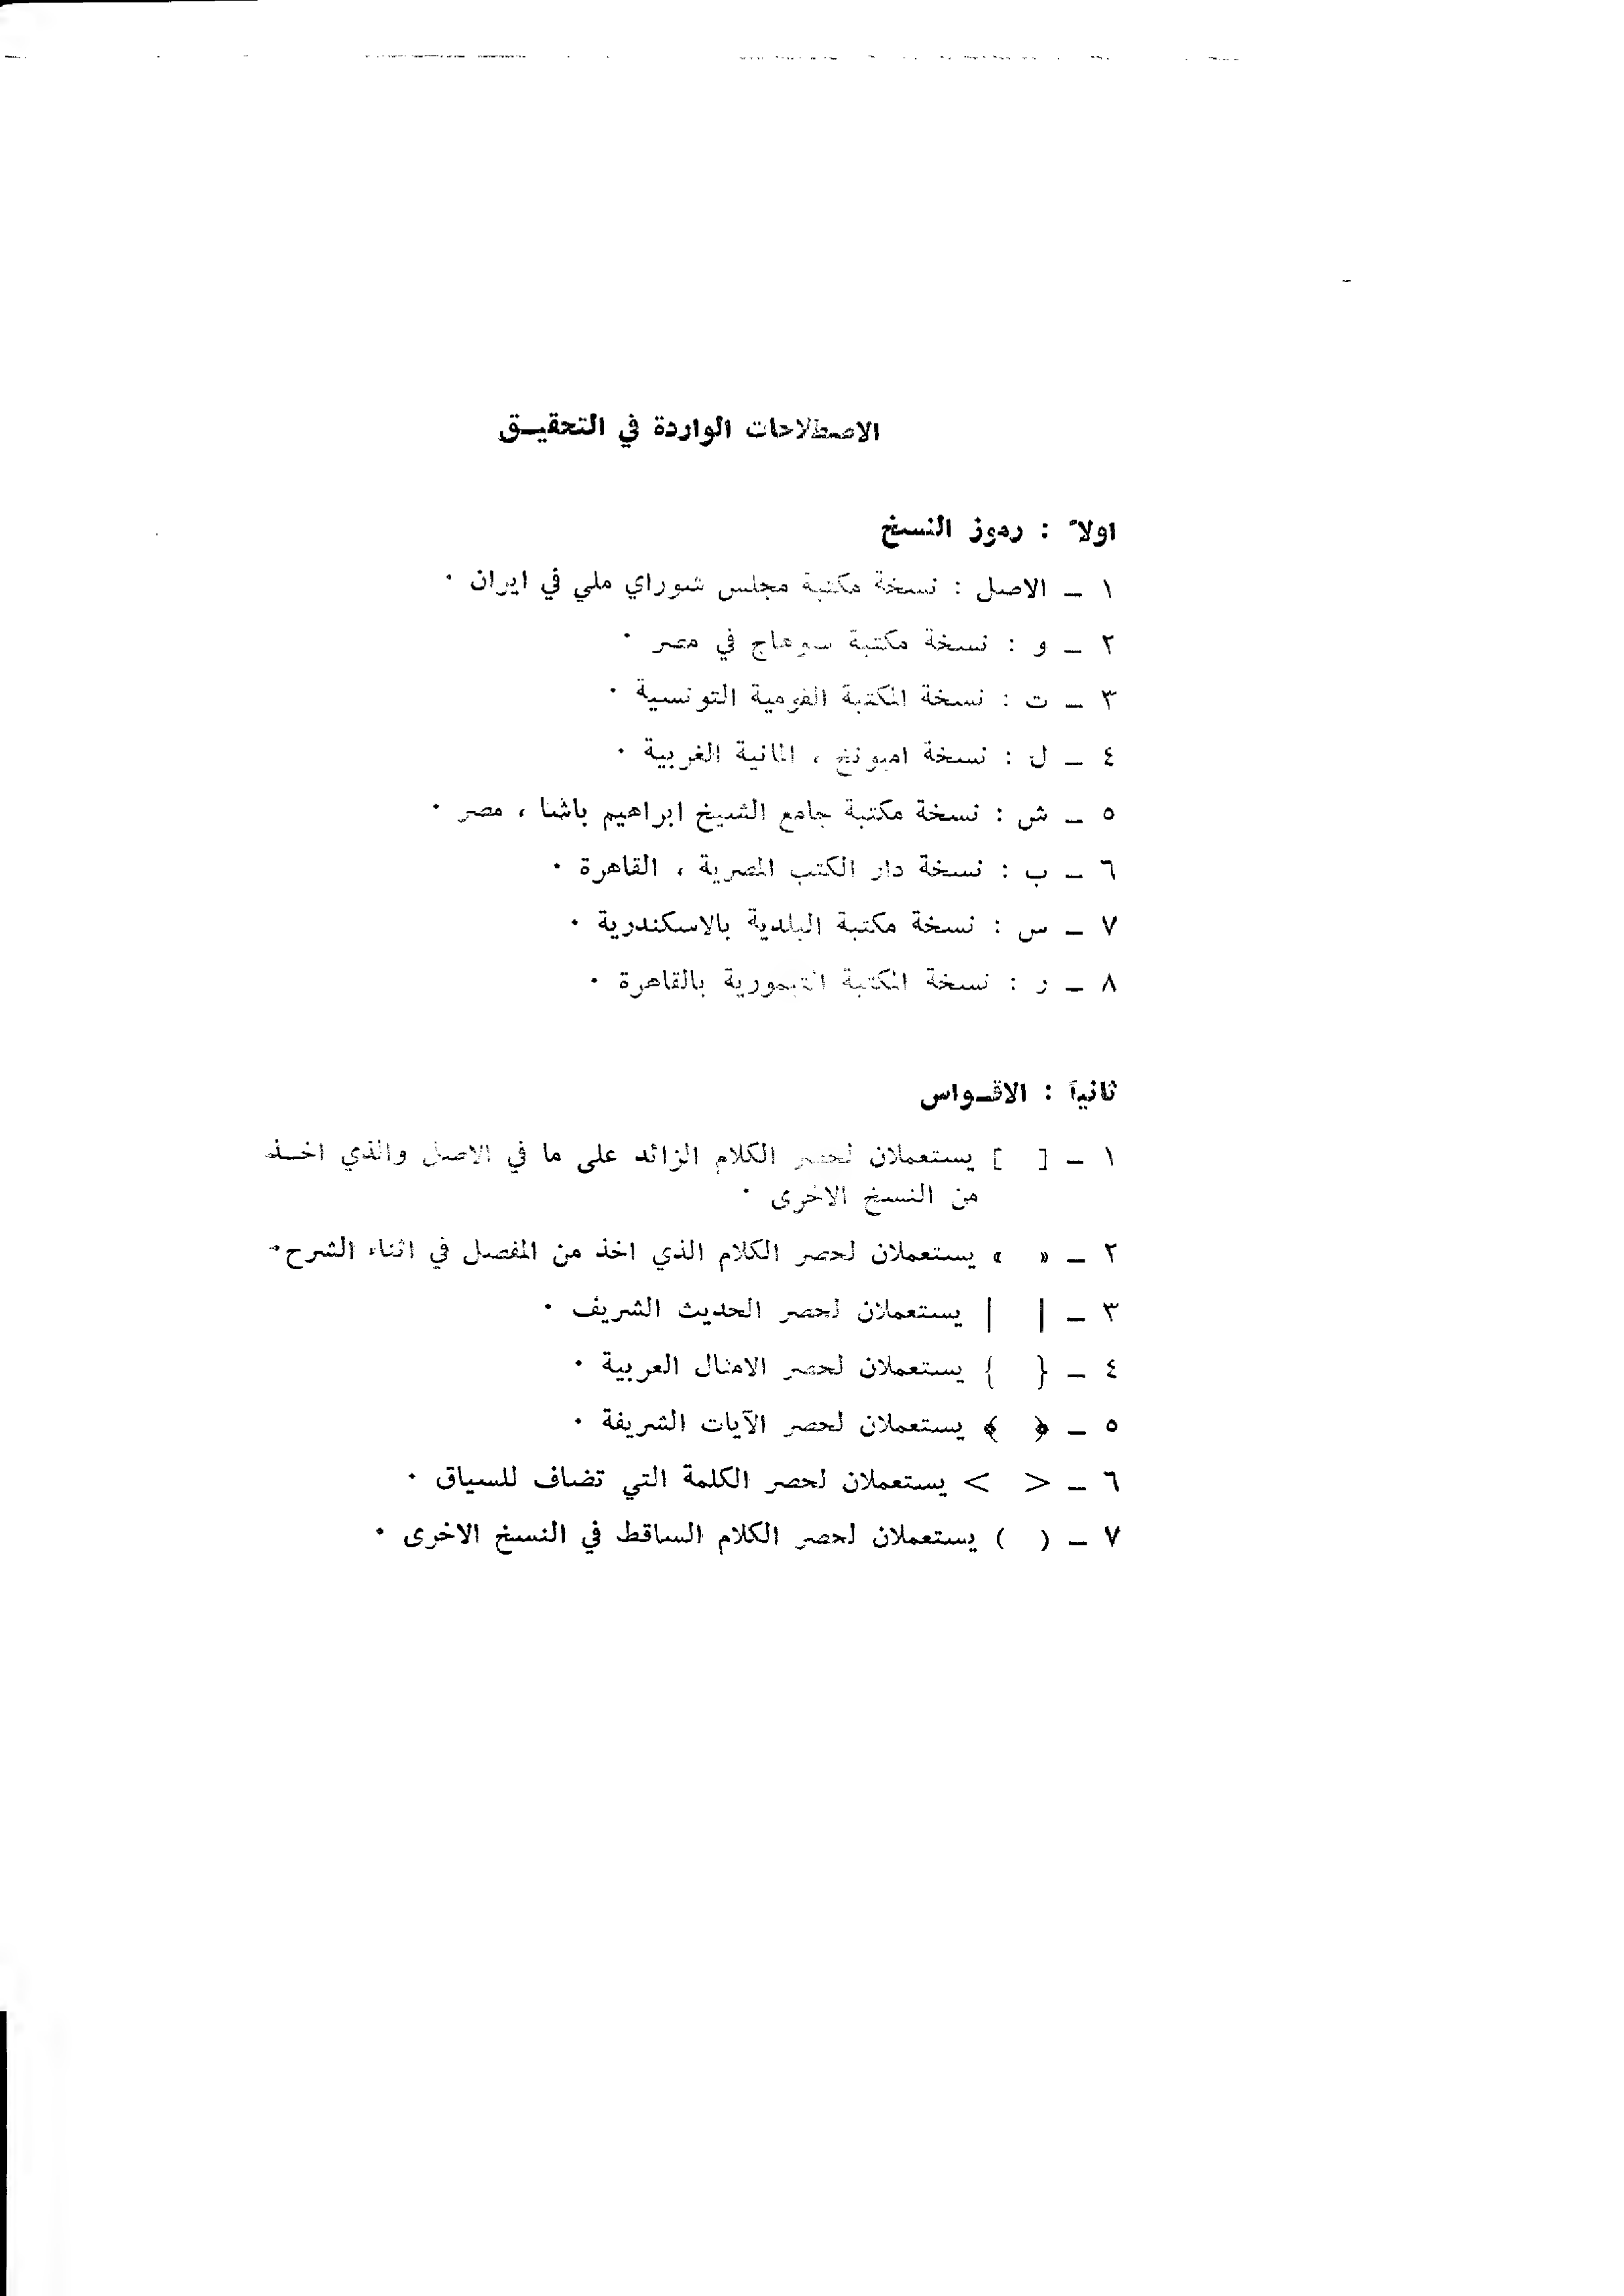 الاصطلاحات الواردة في التحقيـق
اولاً : رموز النسخ
١ ـ الاصل : نسخة مكتبة مجلس شوراي ملي في ايران ٠
٢ ـ و : نسخة مكتبة سوهاج في مصر ٠
٣ ـ ت : نسخة المكتبة القومية التونسية ٠
٤ ـ ل : نسخة ، المانية الغربية ٠
٥ ـ ش : نسخة مكتبة جامع الشيخ ابراهيم باشا ، مصر ٠
٦ ـ ب : نسخة دار الكتب المصرية ، القاهرة ٠
٧ ـ س : نسخة مكتبة البلدية بالاسكندرية ٠
٨ ـ ر : نسخة المكتبة التيمورية بالقاهرة ٠
ثانياً : الاقـواس
١ ـ [ ] يستعملان لحصر الكلام الزائد على ما في الاصل والذي اخـذ
من النسخ الاخرى ٠
٢ ـ « » يستعملان لحصر الكلام الذي اخذ من المفصل في اثناء الشرح٠
٣ ـ | | يستعملان لحصر الحديث الشريف ٠
٤ ـ { } يستعملان لحصر الامثال العربية ٠
٥ ـ ﴿ ﴾ يستعملان لحصر الآيات الشريفة ٠
٦ ـ < > يستعملان لحصر الكلمة التي تضاف للسياق ٠
٧ ـ ( ) يستعملان لحصر الكلام الساقط في النسخ الاخرى ٠